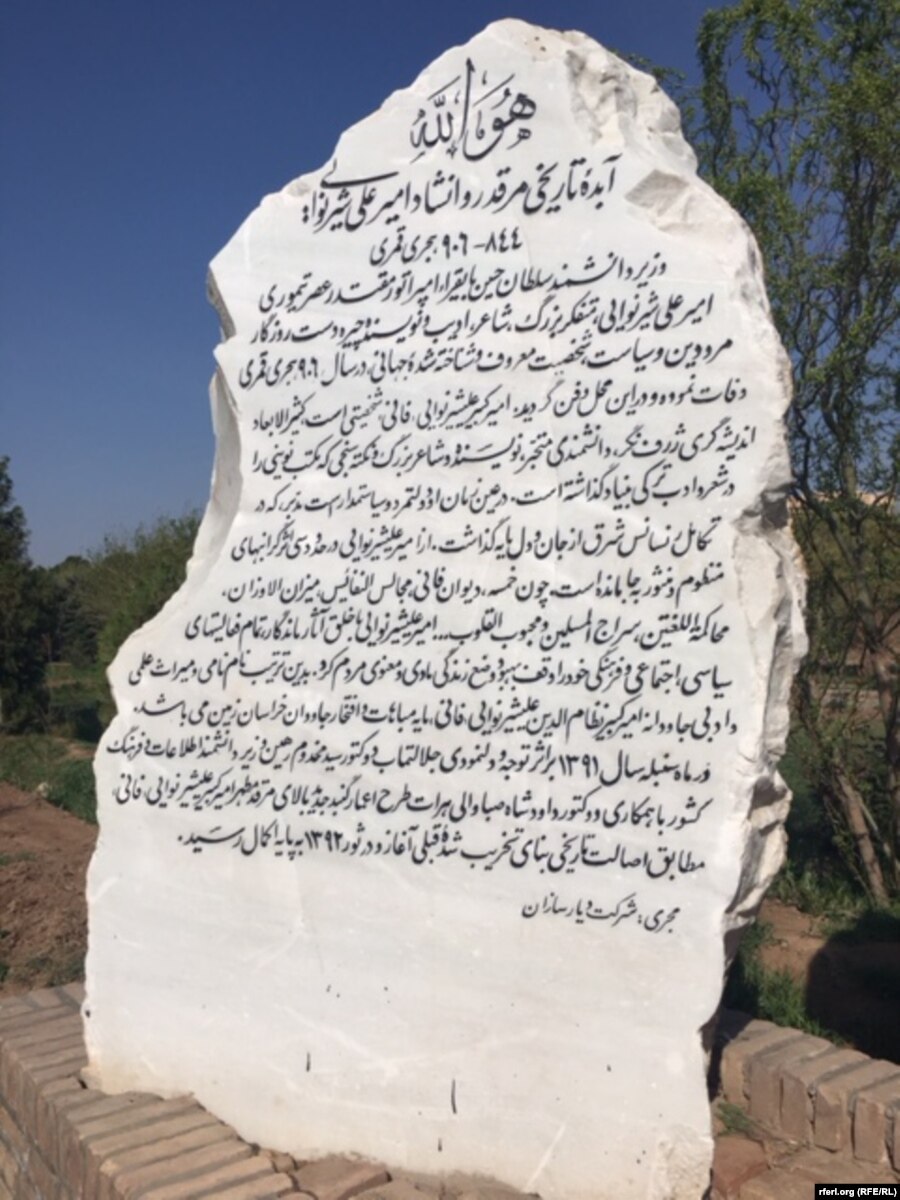 هو الله
آبدهٔ تاریخی مرقد روانشاد امیر علی شیر نوایی
٨٤٤ - ٩٠٦ هجری قمری
وزیر دانشمند سلطان حسین بایقرا، امپراتور مقتدر عصر تیموری
امیر علی شیر نوایی، متفکر بزرگ، شاعر، ادیب و نویسنده چیره دست روزگار
مرد دین و سیاست، شخصیت معروف و شناخته شدهٔ جهانی، در سال ٩٠٦ هجری قمری
وفات نموده و در این محل دفن گردید. امیر کبیر علیشیر نوایی، فانی، شخصیتی است، کثیر الابعاد
اندیشه گری ژرف نگر، دانشمندی متبحر، نویسنده و شاعر بزرگ و نکته سنجی که مکتب نوینی را
در شعر و ادب ترکی بنیاد گذاشته است. در عین زمان او دولتمرد و سیاستمدار است مدبر، که در
تکامل رنسانس شرق از جان و دل پایه گذاشت. از امیر علیشیر نوایی در حدود سی اثر گرانبهای
منظوم و منثور به جا مانده است. چون خمسه، دیوان فانی، مجالس النفائس، میزان الاوزان،
محاکمة اللغتین، سراج المسلمین و محبوب القلوب... امیر علیشیر نوایی با خلق آثار ماندگار، تمام فعالیتهای
سیاسی، اجتماعی و فرهنگی خود را وقف بهبود وضع زندگی مادی و معنوی مردم کرد. بدین ترتیب نام نامی و میراث علمی
و ادبی جاودانه امیر کبیر نظام الدین علیشیر نوایی، فانی، مایه مباهات و افتخار جاودان خراسان زمین می باشد.
در ماه سنبله سال ١٣٩١ بر اثر توجه و لنمودی جلالتماب دوکتور سید مخدوم رهین وزیر دانشمند اطلاعات و فرهنگ
کشور با همکاری دوکتور داود شاه صبا والی هرات طرح اعمار گنبد جدید بالای مرقد مطهر امیر کبیر علیشیر نوایی، فانی،
مطابق اصالت تاریخی بنای تخریب شدهٔ قبلی آغاز و در ثور ١٣٩٢ به پایهٔ اکمال رسید.
مجری: شرکت دیار سازان
rferl.org (RFE/RL)